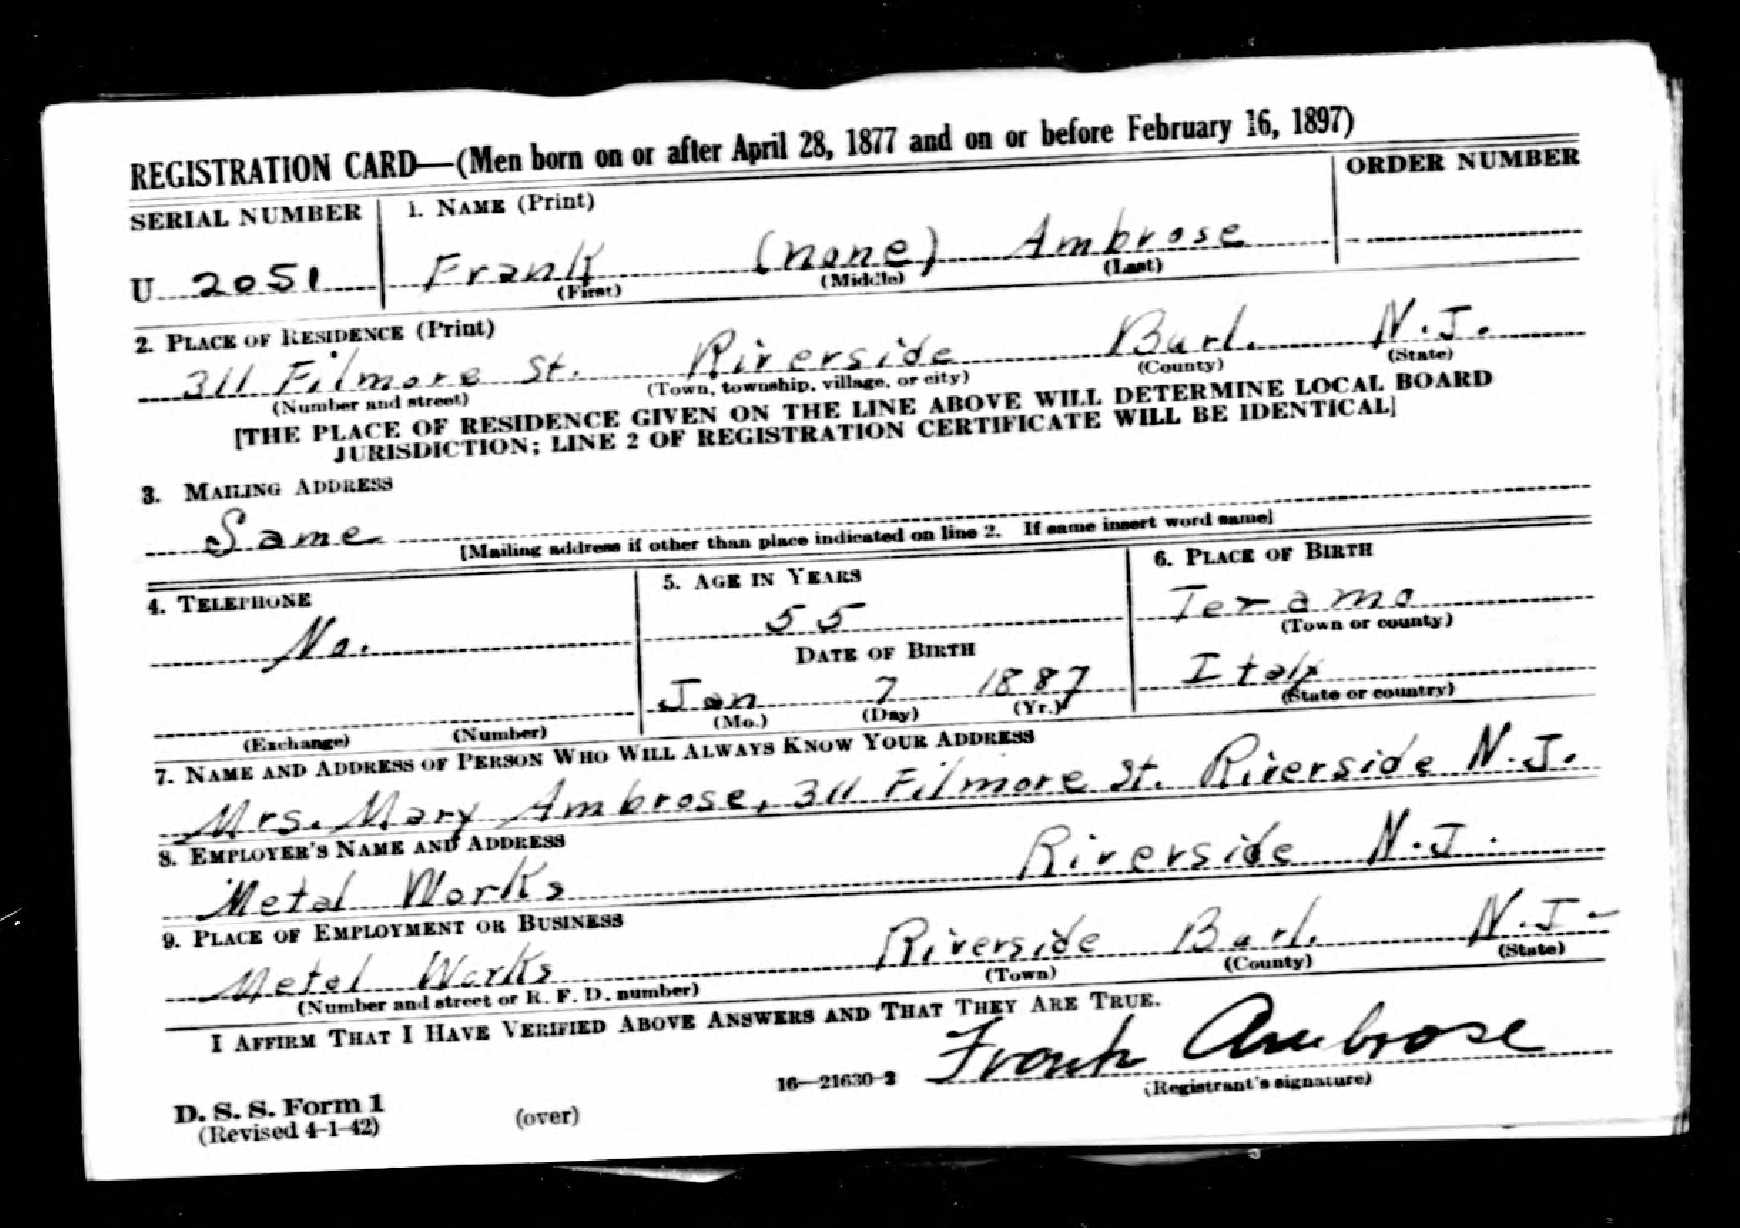 REGISTRATION CARD—(Men born on or after April 28, 1877 and on or before February 16, 1897)
SERIAL NUMBER 1. NAME (Print) ORDER NUMBER
U 2051 Frank (none) Ambrose
(First) (Middle) (Last)
2. PLACE OF RESIDENCE (Print)
311 Filmore St. Riverside Burl. N.J.
(Number and street) (Town, township, village, or city) (County) (State)
[THE PLACE OF RESIDENCE GIVEN ON THE LINE ABOVE WILL DETERMINE LOCAL BOARD
JURISDICTION; LINE 2 OF REGISTRATION CERTIFICATE WILL BE IDENTICAL]
3. MAILING ADDRESS
Same
[Mailing address if other than place indicated on line 2. If same insert word same]
4. TELEPHONE 5. AGE IN YEARS 6. PLACE OF BIRTH
No. 55 Teramo
(Town or county)
DATE OF BIRTH
Jan 7 1887 Italy
(Mo.) (Day) (Yr.) (State or country)
(Exchange) (Number)
7. NAME AND ADDRESS OF PERSON WHO WILL ALWAYS KNOW YOUR ADDRESS
Mrs. Mary Ambrose, 311 Filmore St. Riverside N.J.
8. EMPLOYER'S NAME AND ADDRESS
Metal Works Riverside N.J.
9. PLACE OF EMPLOYMENT OR BUSINESS
Metal Works Riverside Burl. N.J.
(Number and street or R. F. D. number) (Town) (County) (State)
I AFFIRM THAT I HAVE VERIFIED ABOVE ANSWERS AND THAT THEY ARE TRUE.
Frank Ambrose
D. S. S. Form 1 16—21630-2 (Registrant's signature)
(Revised 4-1-42) (over)